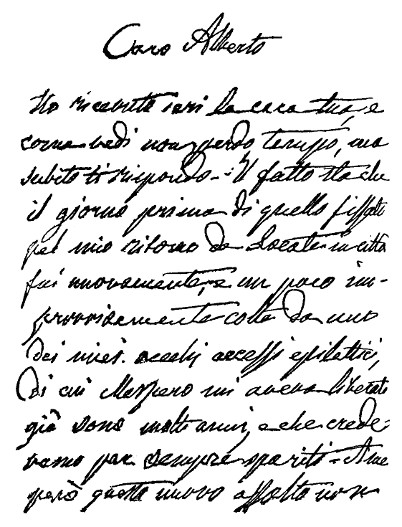 Caro Alberto
Ho ricevuta ieri la cara tua, e
come vedi non perdo tempo, ma
subito ti rispondo - Il fatto sta che
il giorno prima di quello fissato
pel mio ritorno da Locate in città
fui nuovamente, e un poco im-
provvisamente colta da uno
dei miei vecchi accessi epilettici,
di cui Maspero mi aveva liberato
già sono molti anni, e che crede
vamo per sempre spariti - A me
però questo nuovo assalto non